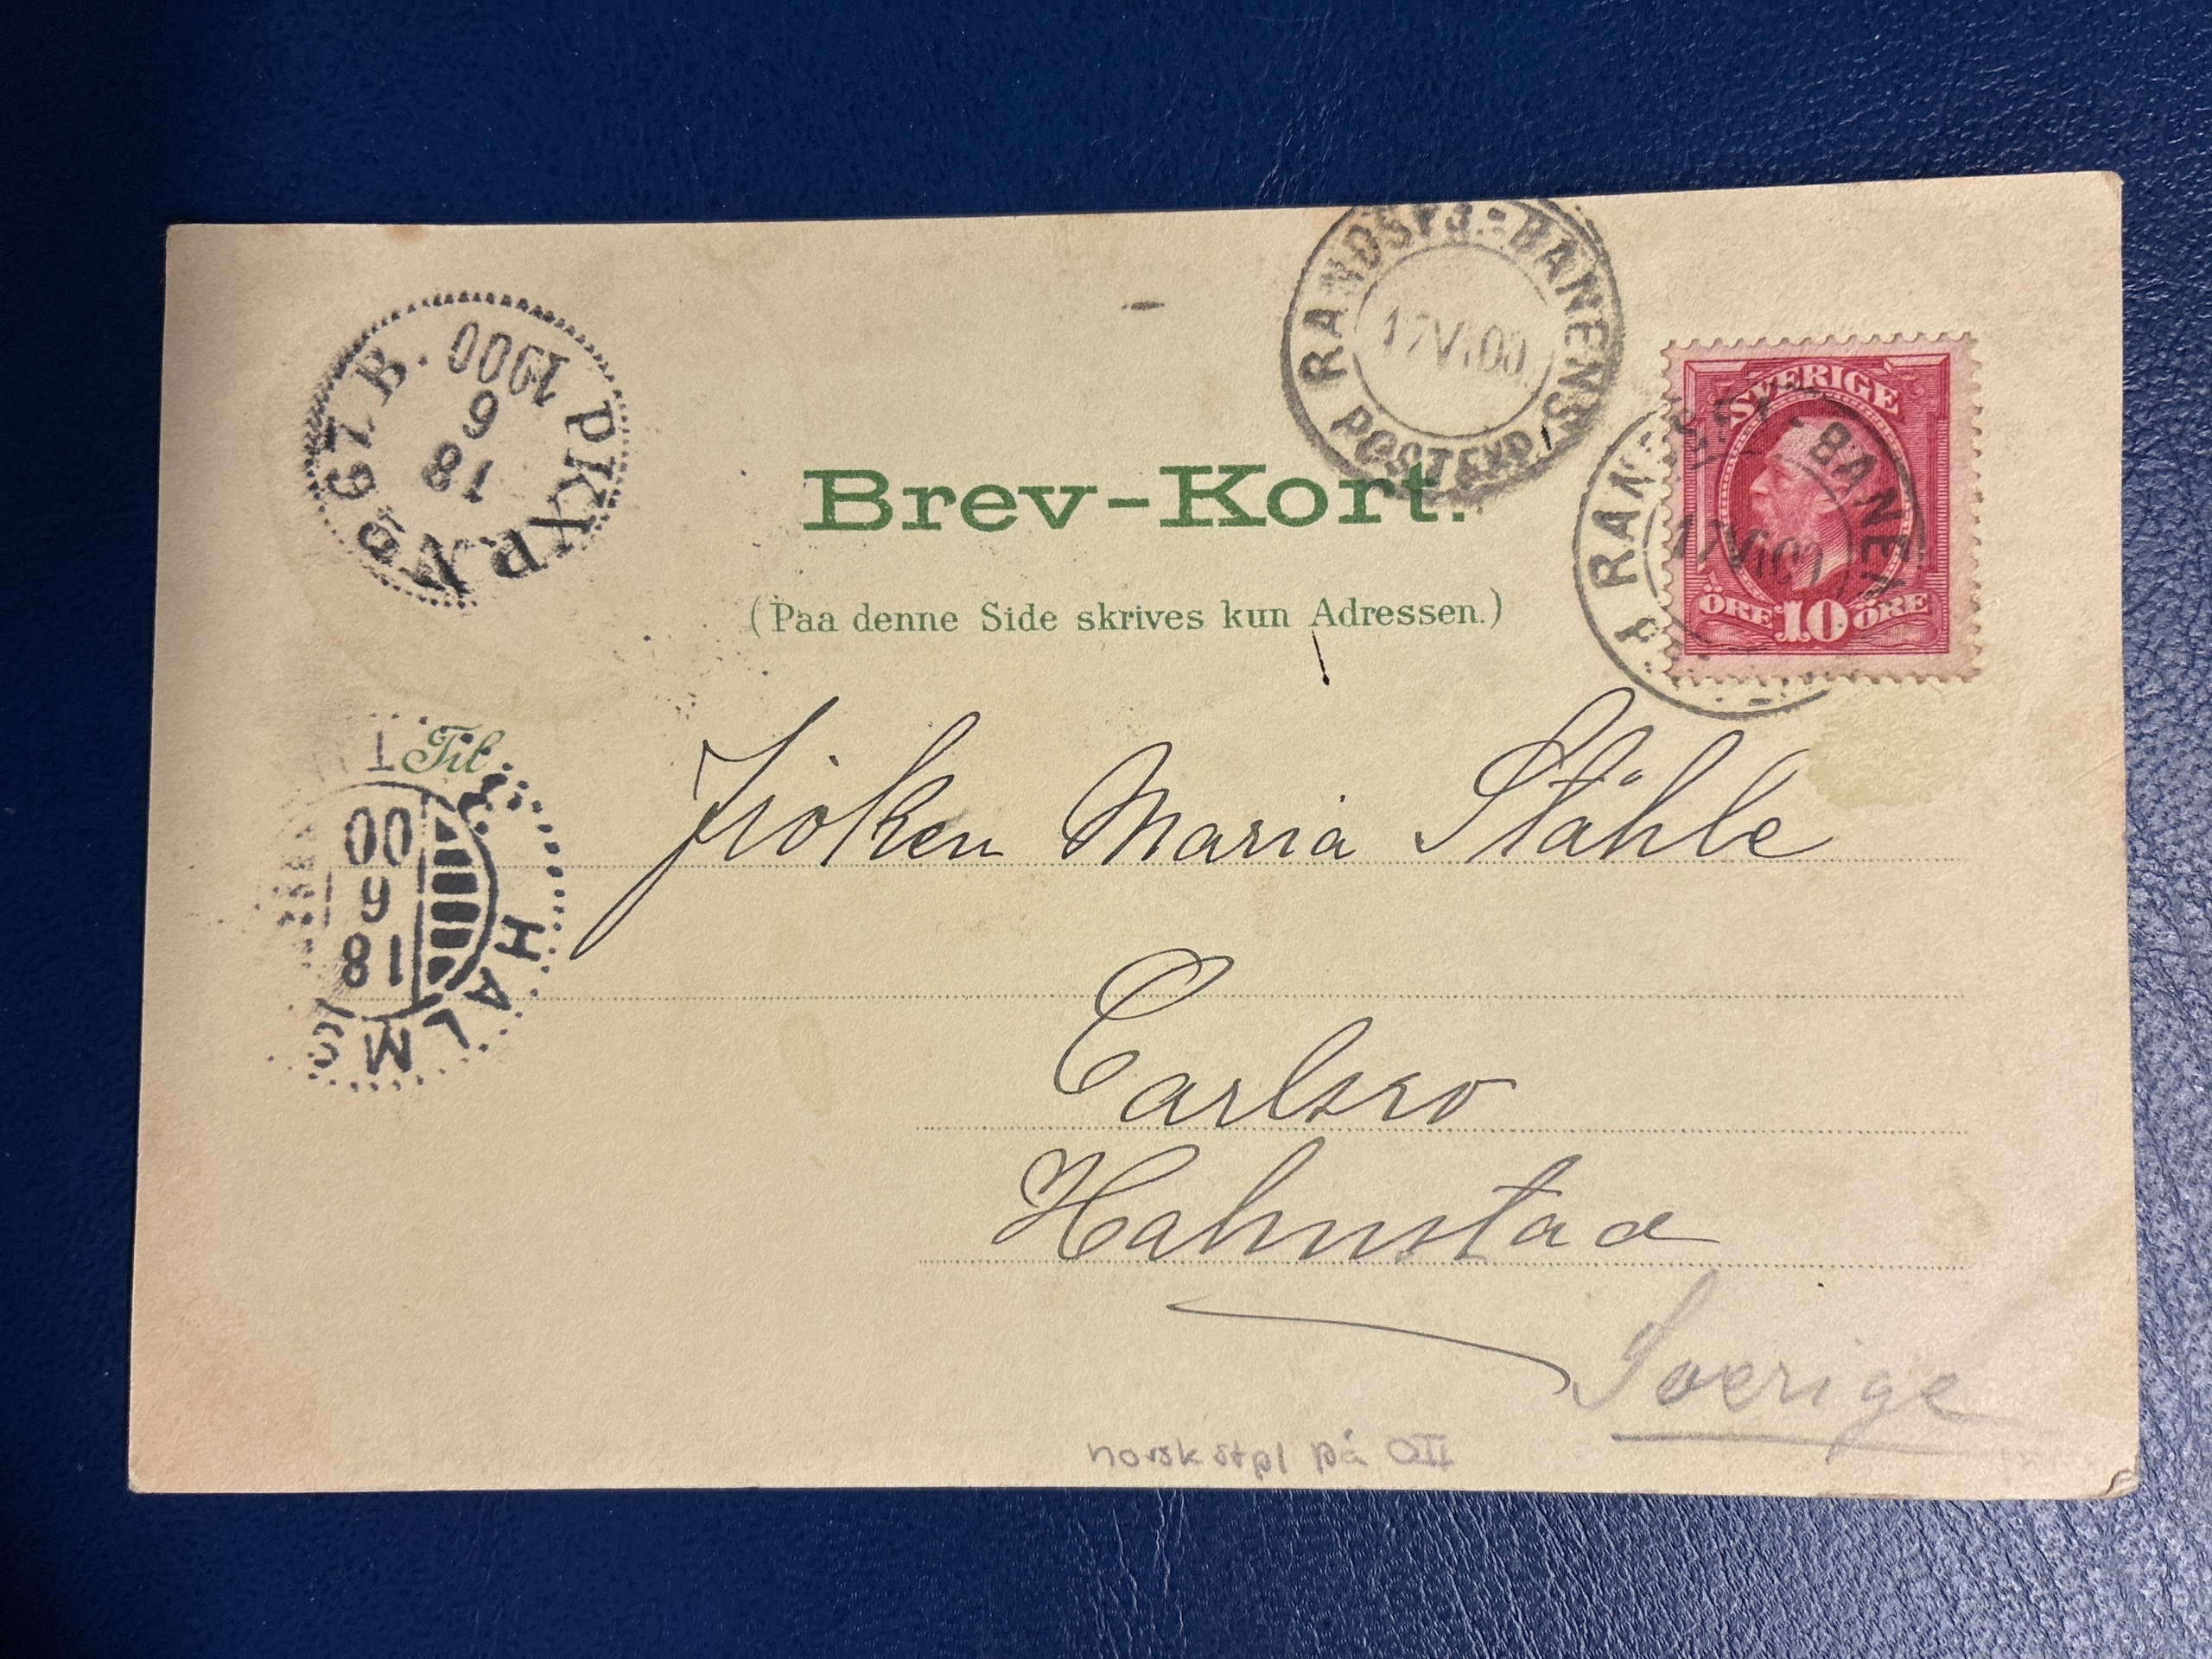 RANDSFJ.-BANENS
POSTEXP.
17 VI 00
SVERIGE
ÖRE 10 ÖRE
BANEN
17 VI 00
PKXP. Nº 67 B.
1900
6
18
Brev-Kort.
(Paa denne Side skrives kun Adressen.)
Til
HALMS
00
6
18
Fröken Maria Ståhle
Carlsro
Halmstad
Sverige
norsk stpl på OII